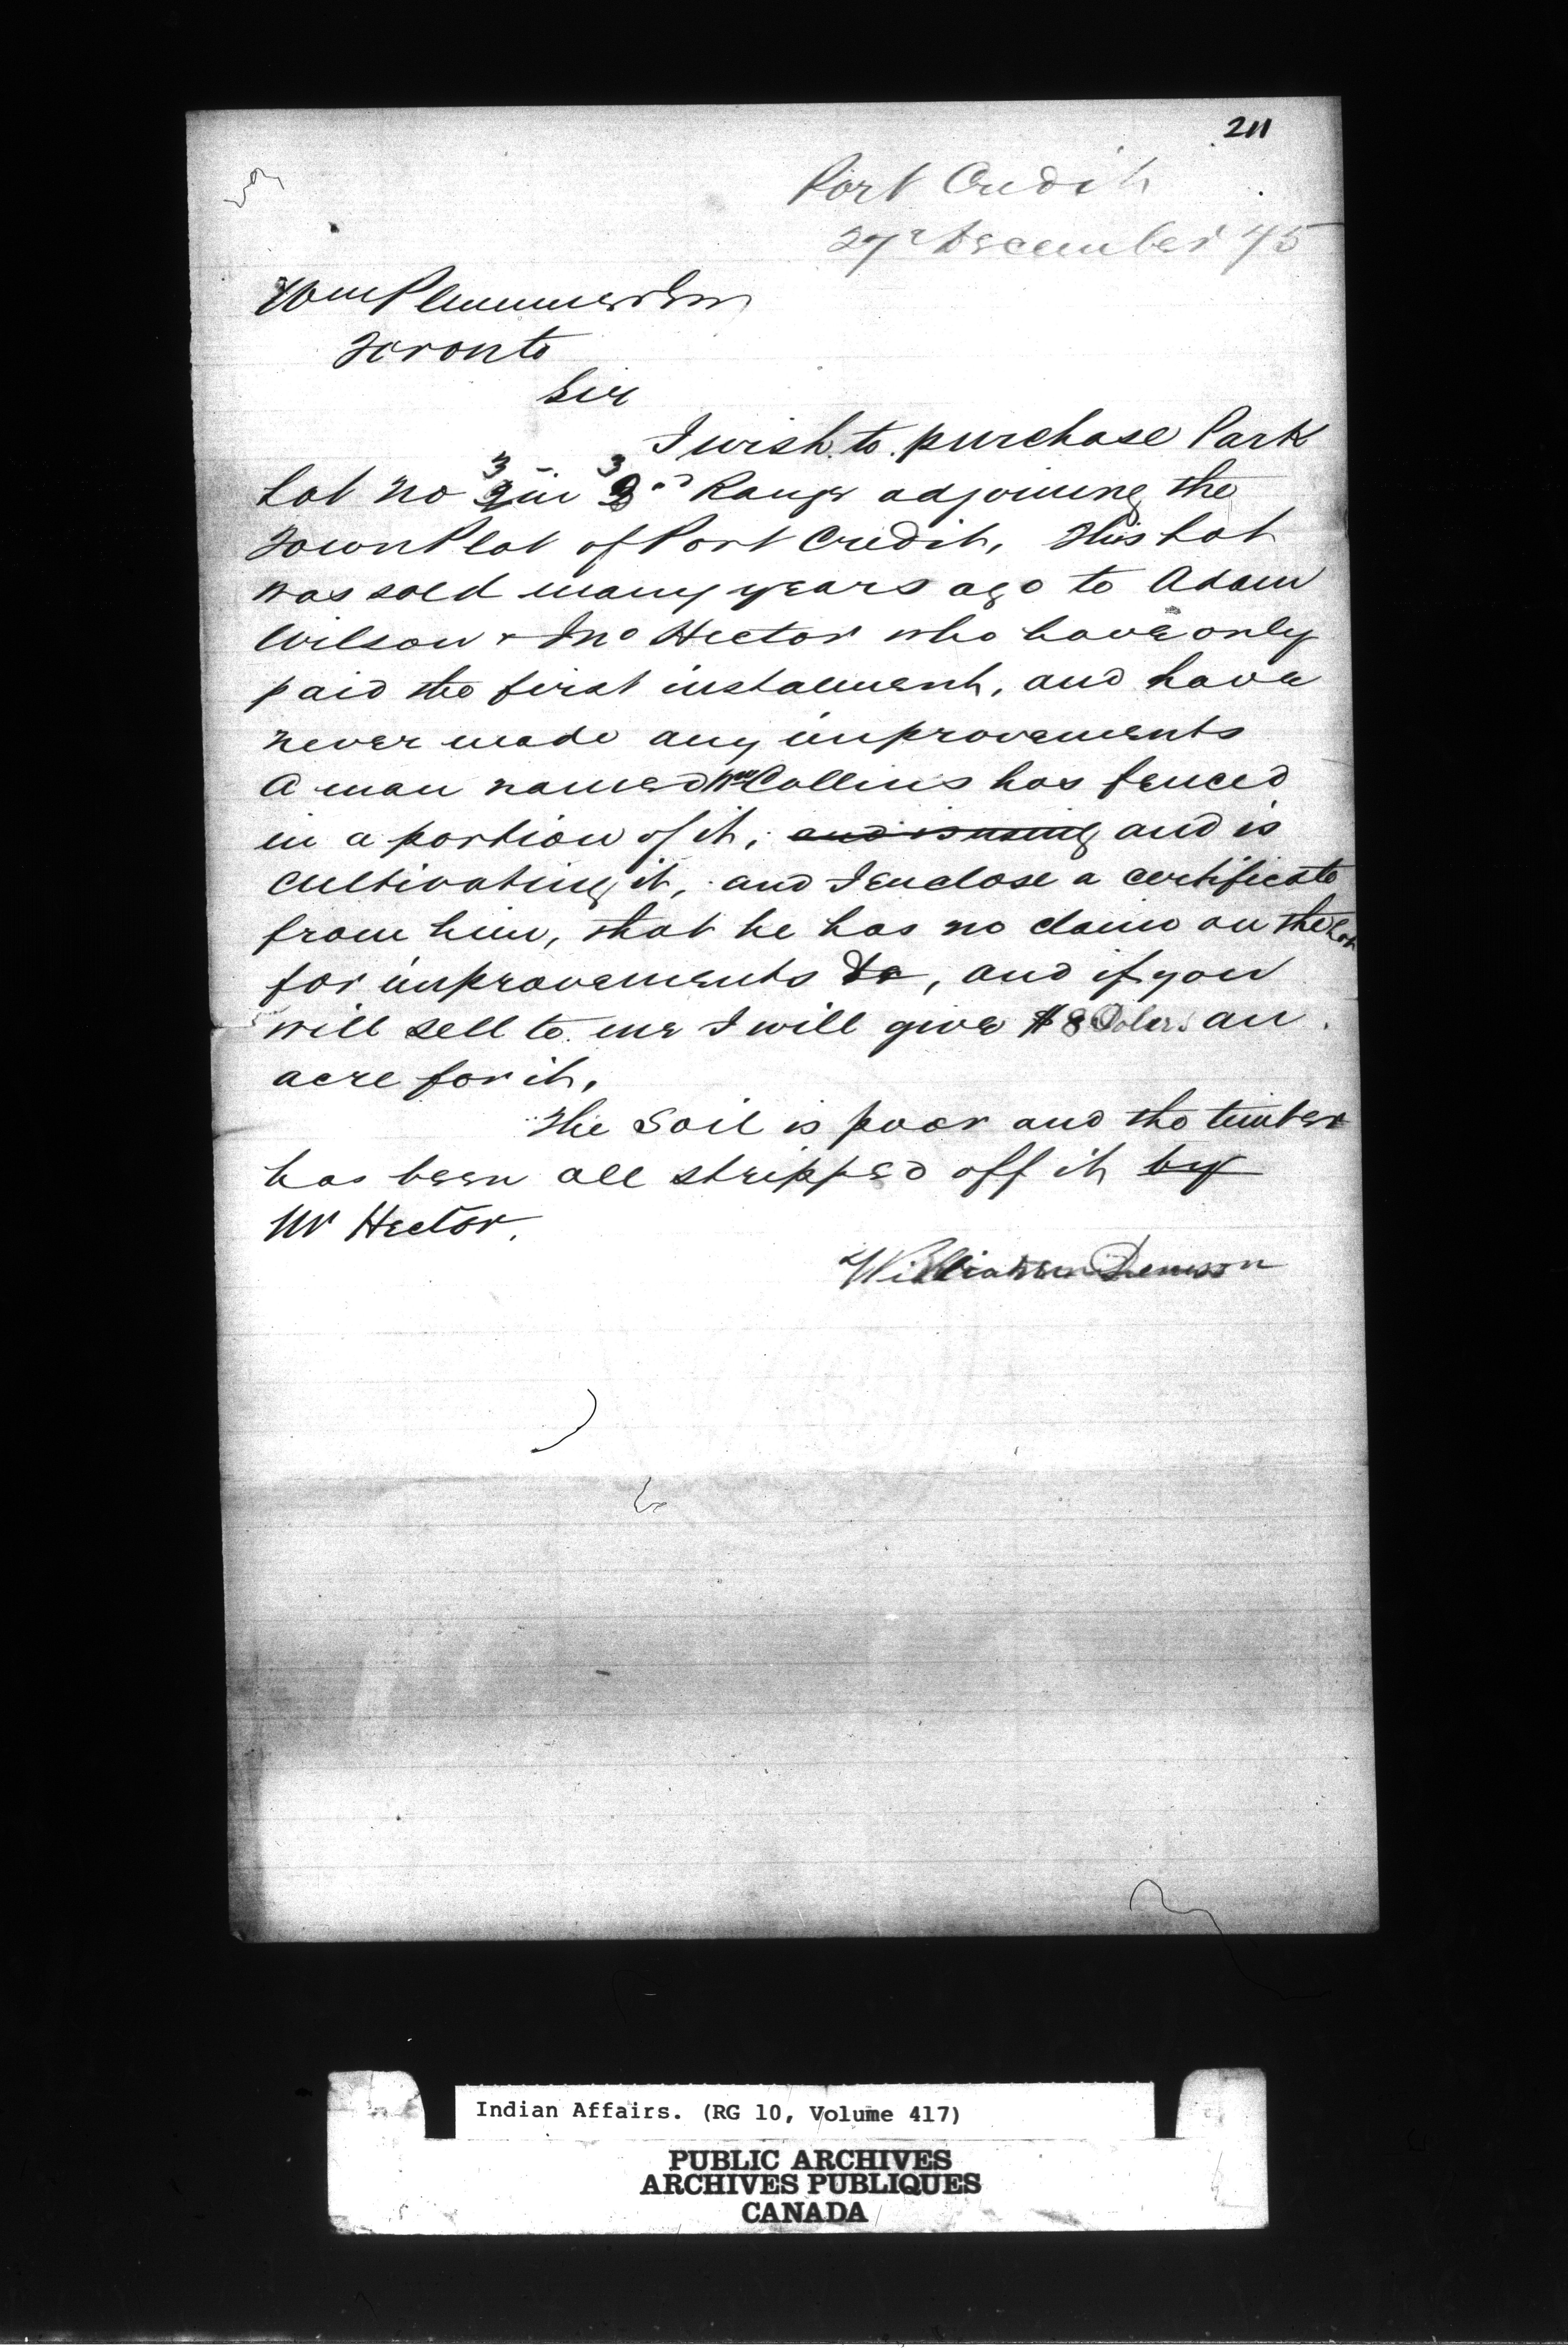 211
Port Credit
27 December 75
Wm Plummer Esq
Toronto
Sir
I wish to purchase Park
3 3
Lot no 2 in 2nd Range adjoining the
Town Plot of Port Credit, This Lot
was sold many years ago to Adam
Wilson & Jno Hector who have only
paid the first instalment, and have
never made any improvements
A man named Wm Collins has fenced
in a portion of it, and is using and is
cultivating it, and I enclose a certificate
from him, that he has no claim on the Lot
for improvements &c, and if you
will sell to me I will give $ 8 Dolers an
acre for it,
The Soil is poor and the timber
has been all stripped off it by
Mr Hector.
William Denison
Indian Affairs. (RG 10, Volume 417)
PUBLIC ARCHIVES
ARCHIVES PUBLIQUES
CANADA